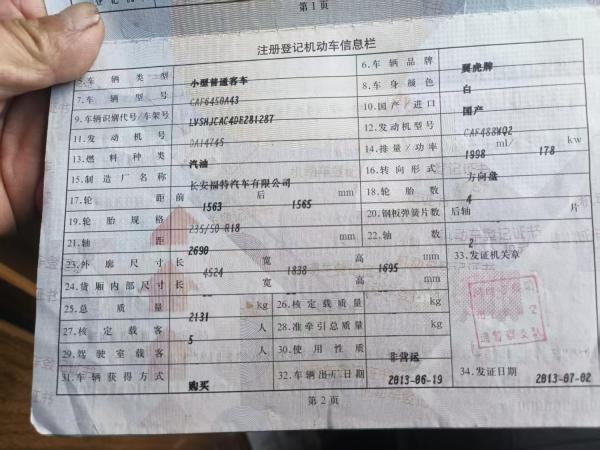 第1页
注册登记机动车信息栏
5.车辆类型 小型普通客车 6.车辆品牌 翼虎牌
7.车辆型号 CAF6450A43 8.车身颜色 白
9.车辆识别代号/车架号 LVSHJCAC4DE281287 10.国产/进口 国产
11.发动机号 DA14745 12.发动机型号 CAF488WQ2
13.燃料种类 汽油 14.排量/功率 1998 ml/ 178 kw
15.制造厂名称 长安福特汽车有限公司 16.转向形式 方向盘
17.轮距 前 1563 后 1565 mm 18.轮胎数 4
19.轮胎规格 235/50 R18 mm 20.钢板弹簧片数 后轴 片
21.轴距 2690 mm 22.轴数 2
23.外廓尺寸 长 4524 宽 1838 高 1695 mm 33.发证机关章
24.货厢内部尺寸 长 宽 高 mm
25.总质量 2131 kg 26.核定载质量 kg
27.核定载客 5 人 28.准牵引总质量 kg
29.驾驶室载客 人 30.使用性质 非营运
31.车辆获得方式 购买 32.车辆出厂日期 2013-06-19 34.发证日期 2013-07-02
第2页